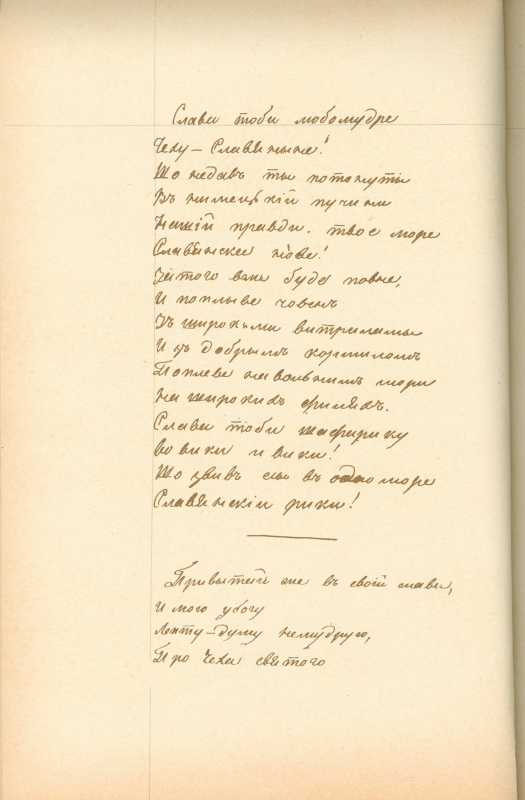 Слава тоби любомудре
Чеху – Славяныне!
Що недавъ ты потонути
Въ нимецькій пучини
Нашій правди. твое море
Славянскее нове!
Затого вже буде повне,
И поплыве човенъ
Въ широкыми витрилами
И зъ добрымъ кормиломъ
Поплеве на вольнимъ мори
На широкихъ филяхъ.
Слава тоби Шафарику
Во вики и вики!
Що звивъ еси въ одно море
Славянскіи рики!
Привытай же въ своій славі,
И мою убогу
Лепту – думу немудрую,
Про Чеха святого